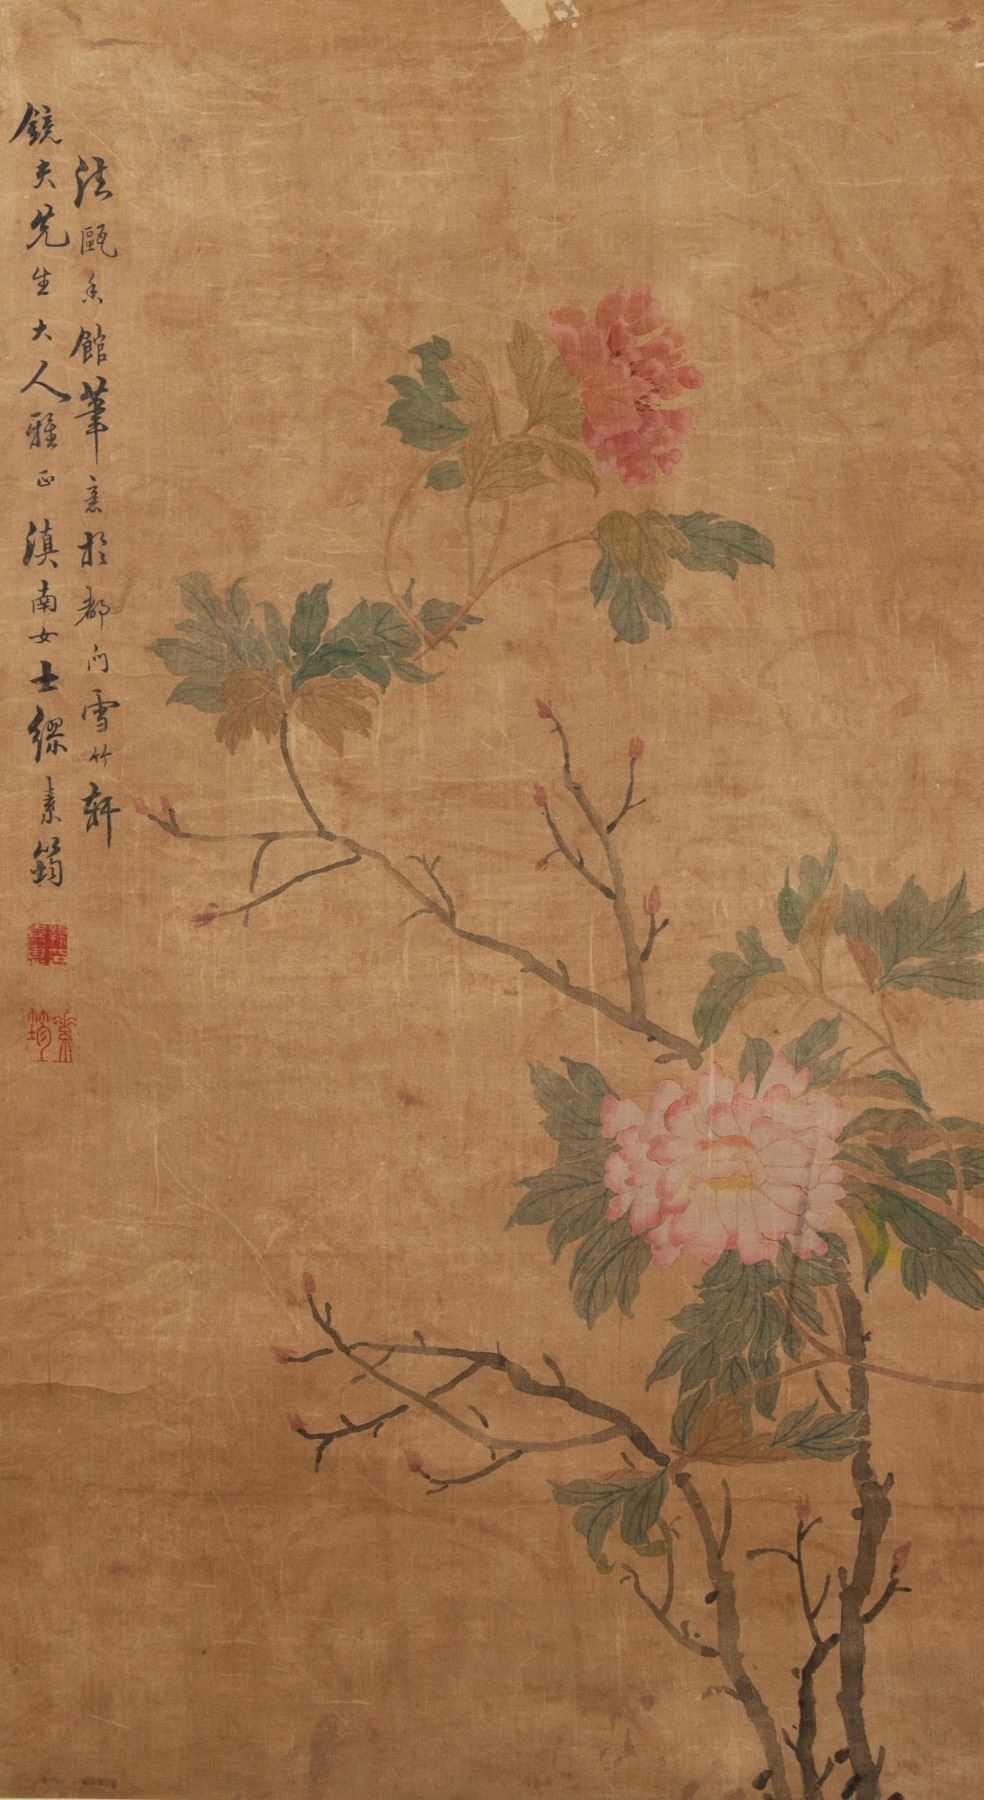 法甌香館筆意於都門雪竹軒
鏡夫先生大人雅正滇南女士繆素筠
素筠